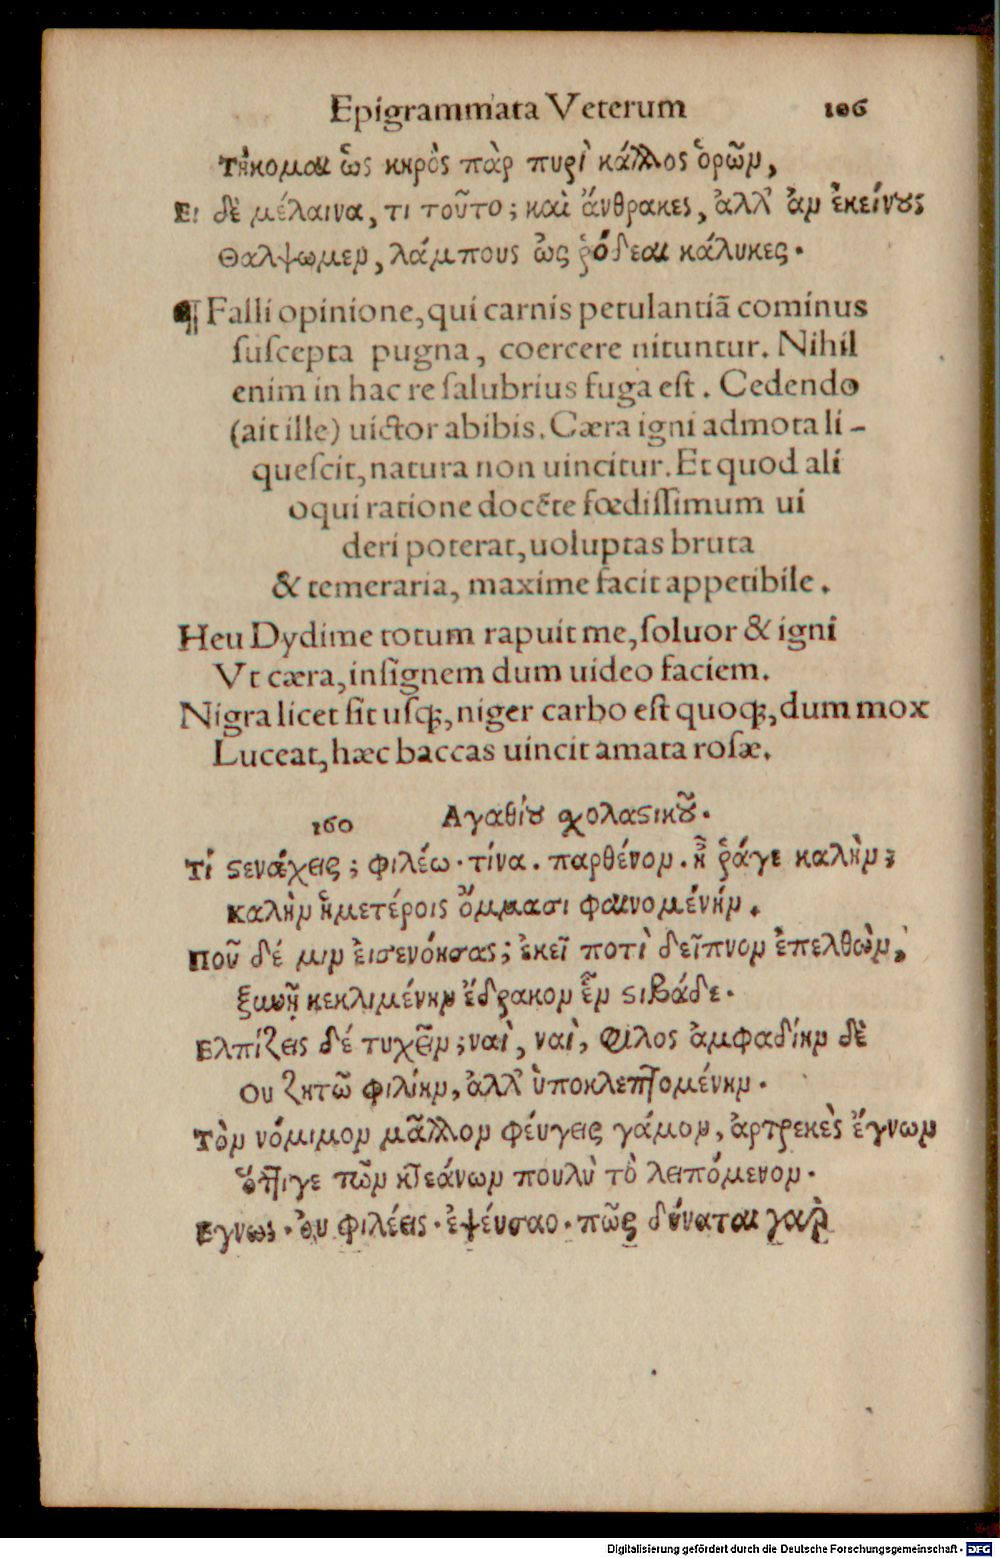 Epigrammata Veterum 106
Τήκομαι ὡς κηρὸς πὰρ πυρὶ κάλλος ὁρῶν,
Ει δὲ μέλαινα, τι τοῦτο; καὶ ἄνθρακες, ἀλλ' ἂν ἐκείνους
Θαλψωμεν, λάμπους ὡς ῥόδεαι κάλυκες.
¶ Falli opinione, qui carnis petulantiā cominus
suſcepta pugna, coercere nituntur. Nihil
enim in hac re ſalubrius fuga eſt. Cedendo
(ait ille) uictor abibis. Cæra igni admota li-
queſcit, natura non uincitur. Et quod ali
oqui ratione docēte fœdiſſimum ui
deri poterat, uoluptas bruta
& temeraria, maxime facit appetibile.
Heu Dydime totum rapuit me, ſoluor & igni
Vt cæra, inſignem dum uideo faciem.
Nigra licet ſit uſq;, niger carbo eſt quoq;, dum mox
Luceat, hæc baccas uincit amata roſæ.
160 Αγαθίου σχολαστικοῦ.
Τί στενάχεις; φιλέω. τίνα. παρθένον. ἦ ῥάγε καλήν;
καλὴν ἡμετέροις ὄμμασι φαινομένήν.
Ποῦ δέ μιν ἐισενόησας; ἐκεῖ ποτὶ δεῖπνον ἐπελθὼν,
ξυνῇ κεκλιμένην ἔδρακον ἓν στιβάδε.
Ελπίζεις δέ τυχεῖν; ναὶ, ναὶ, φίλος ἀμφαδίην δὲ
Ου ζητῶ φιλίην, ἀλλ' ὑποκλεπτομένην.
Τὸν νόμιμον μᾶλλον φέυγεις γάμον, ἀρτρεκὲς ἔγνων
ὅττιγε πῶν κτεάνων πουλὺ τὸ λειπόμενον.
Εγνως. ὀυ φιλέεις. ἐψέυσαο. πῶς δύναται γαρ